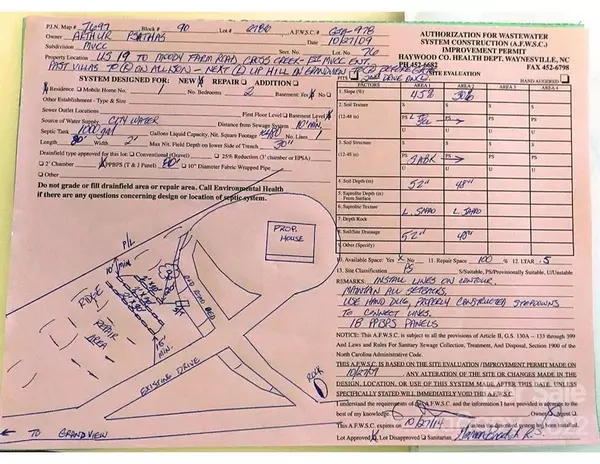 P.J.N. Map # 7697 Block # 90 Lot # 2186 A.F.W.S.C. #
Owner ARTHUR PSATHAS 10/27/09
Subdivision MVCC Sect. No. Lot No. 76
Property Location US 19 TO MOODY FARM ROAD, CROSS CREEK - ENT.
PAST VILLAS TO ON ALLISON - NEXT UP HILL IN GRANDVIEW
AUTHORIZATION FOR WASTEWATER
SYSTEM CONSTRUCTION (A.F.W.S.C.)
IMPROVEMENT PERMIT
HAYWOOD CO. HEALTH DEPT. WAYNESVILLE, NC
PH. 452-6682 FAX 452-6798
SITE EVALUATION
SYSTEM DESIGNED FOR: NEW REPAIR ADDITION
Residence Mobile Home No. 1 No. Bedrooms 2 Basement: Yes No
Other Establishment - Type & Size
Sewer Outlet Locations First Floor Level Basement Level
Source of Water Supply CITY WATER Distance from Sewage System 10' MIN.
Septic Tank 1000 gal Gallons Liquid Capacity, Nit. Square Footage No. Lines
Length 80' Width 2' Max Nit. Field Depth on Lower Side of Trench 30"
Drainfield type approved for lot: Conventional (Gravel) 25% Reduction (3' chamber or EPSA)
2' Chamber PPBPS (T & J Panel) 80' 10" Diameter Fabric Wrapped Pipe
Other
Do not grade or fill drainfield area or repair area. Call Environmental Health
if there are any questions concerning design or location of septic system.
FACTORS AREA 1 AREA 2 AREA 3 AREA 4
HAND AUGERED
1. Slope (%) 45% 30%
2. Soil Texture S S S S
(12-48 in) PS PS PS PS
U U U U
3. Soil Structure S S S S
(12-48 in) PS SABK PS PS PS
U U U U
4. Soil Depth (in) 52" 48"
5. Saprolite Depth (in)
From Surface
6. Saprolite Texture L. SAND L. SAND
7. Depth Rock
8. Soil/Site Drainage 52" 48"
9. Other (Specify)
10. Available Space: Yes X No 11. Repair Space 100 % 12. LTAR .5
13. Site Classification PS S/Suitable, PS/Provisionally Suitable, U/Unstable
REMARKS: INSTALL LINES ON CONTOUR.
MAINTAIN ALL SETBACKS.
USE HAND DUG, PROPERLY CONSTRUCTED STEPDOWNS
TO CONNECT LINES.
18 PPBPS PANELS
NOTICE: This A.F.W.S.C. is subject to all the provisions of Article II, G.S. 130A - 133 through 399
And Laws and Rules For Sanitary Sewage Collection, Treatment, And Disposal, Section 1900 of the
North Carolina Administrative Code.
THIS A.F.W.S.C. IS BASED ON THE SITE EVALUATION/IMPROVEMENT PERMIT MADE ON
10/27/09 ANY ALTERATION OF THE SITE OR CHANGES MADE IN THE
DESIGN, LOCATION, OR USE OF THIS SYSTEM MADE AFTER THIS DATE, UNLESS
SPECIFICALLY STATED WILL IMMEDIATELY VOID THE A.F.W.S.C.
I understand the requirements of A.F.W.S.C. and the information I have provided is accurate to the
best of my knowledge. Owner Agent
This A.F.W.S.C. expires on 10/27/14 unless the described system has been installed.
Lot Approved Lot Disapproved Sanitarian R.S.
PROP.
HOUSE
P/L
10' MIN
OLD ROAD BED
RIDGE
REPAIR
AREA
MIN.
EXISTING DRIVE
ROCK
TO GRANDVIEW